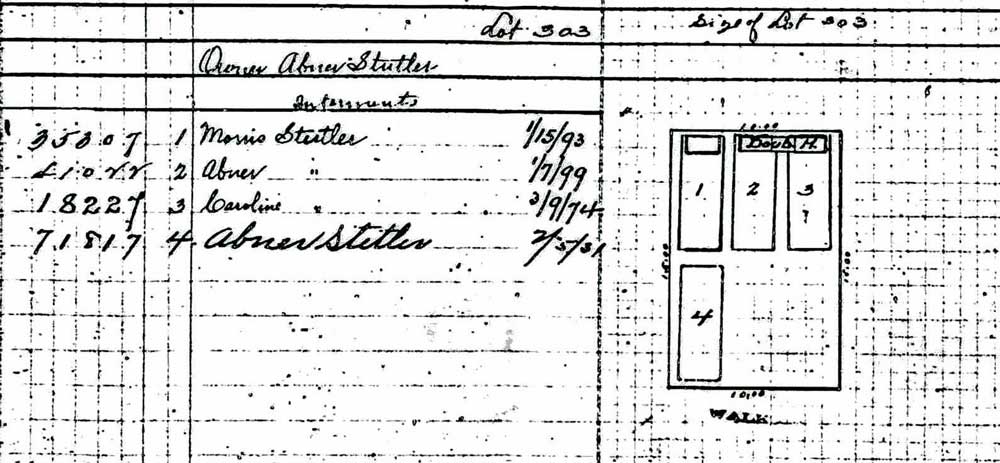 Lot 303
Size of Lot 303
Owner Abner Stutler
Interments
35307 1 Morris Stutler 1/15/93
41022 2 Abner " 1/7/99
18227 3 Caroline " 3/9/74
71817 4 Abner Stetler 2/5/31
10.00
Doub. H.
1 2 3
?
15.00 15.00
4
10.00
WALK